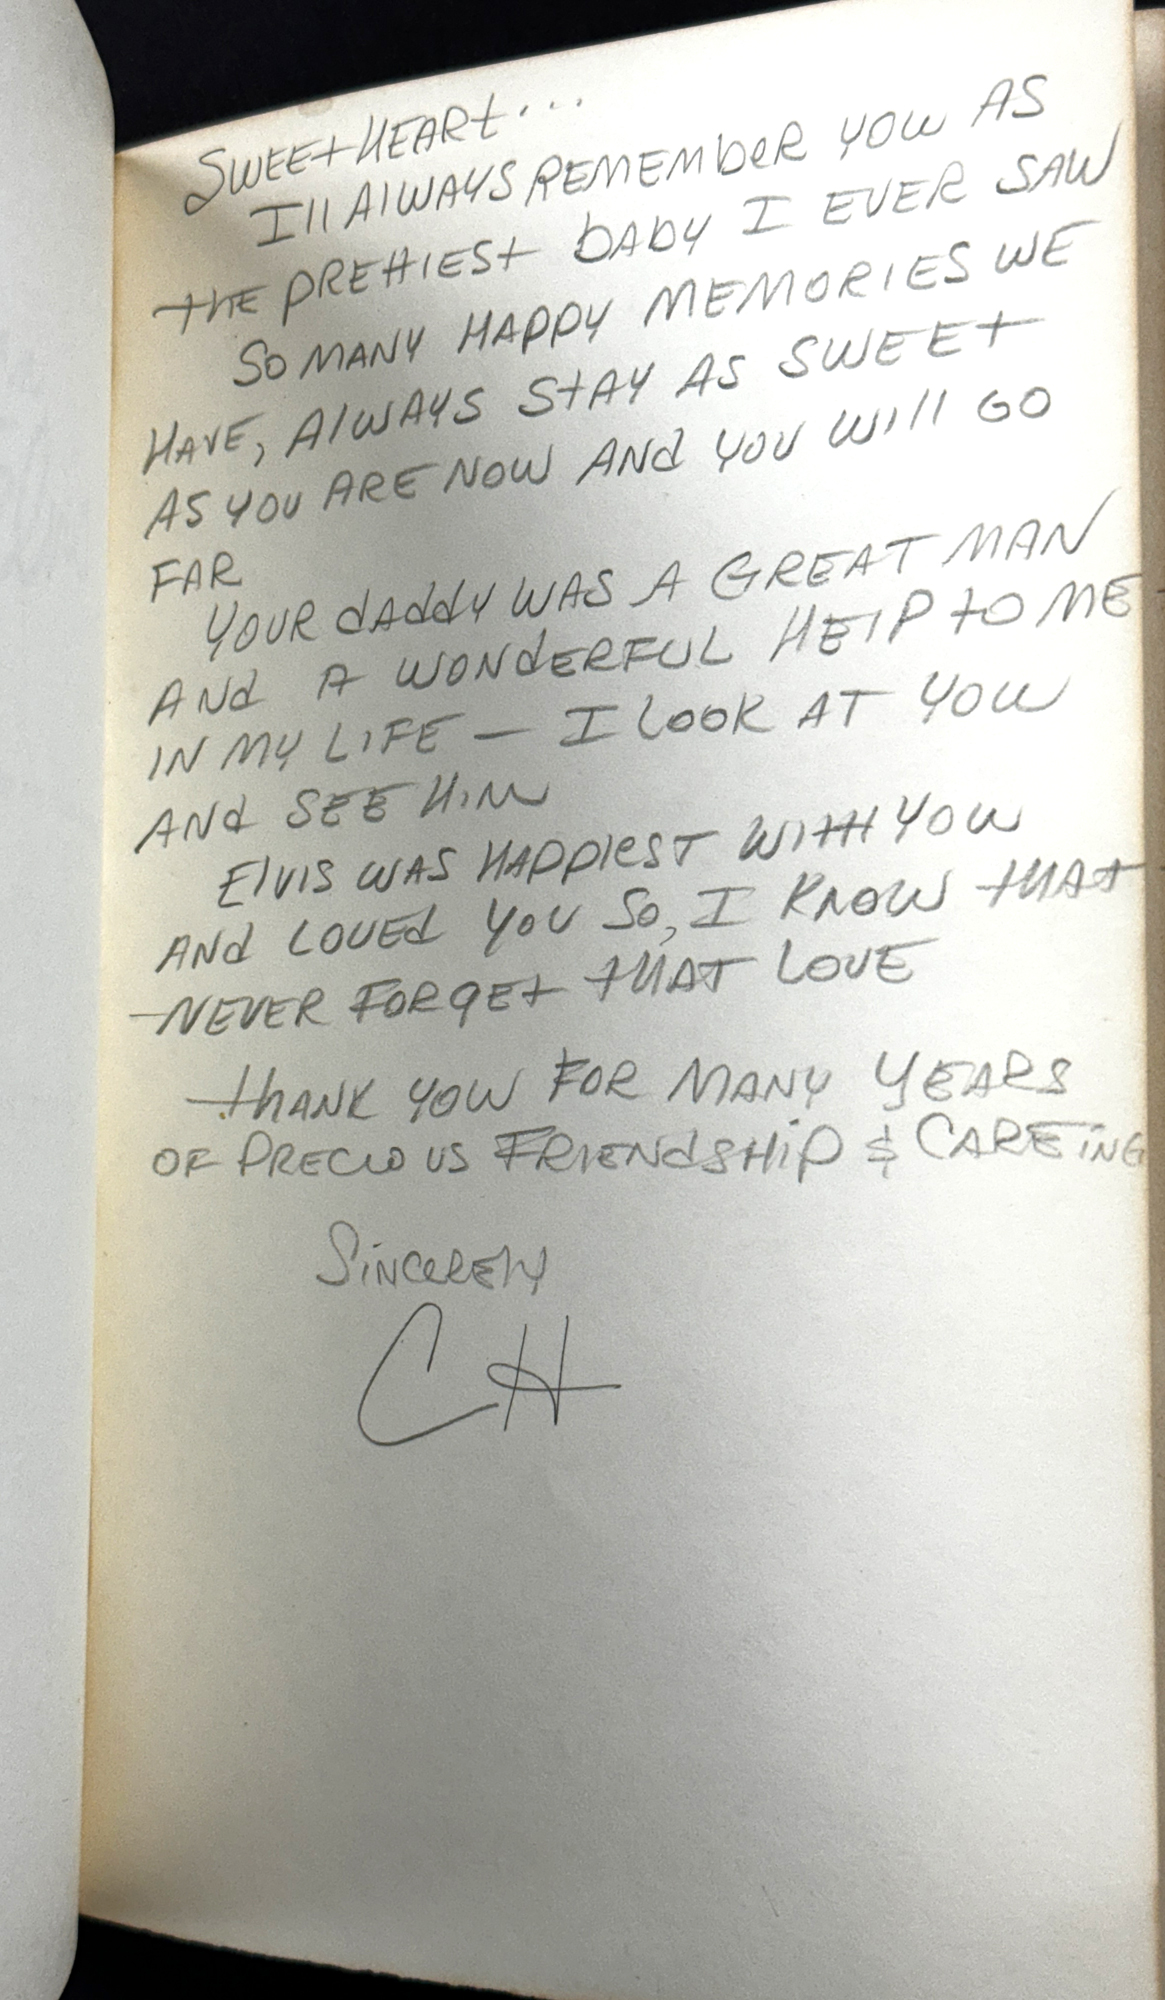 SWEETHEART...
I'll ALWAYS REMEMBER YOU AS
THE PRETTIEST BABY I EVER SAW
SO MANY HAPPY MEMORIES WE
HAVE, ALWAYS STAY AS SWEET
AS YOU ARE NOW AND YOU WILL GO
FAR
YOUR DADDY WAS A GREAT MAN
AND A WONDERFUL HELP TO ME
IN MY LIFE — I LOOK AT YOU
AND SEE HIM
ELVIS WAS HAPPIEST WITH YOU
AND LOVED YOU SO, I KNOW THAT
NEVER FORGET THAT LOVE
THANK YOU FOR MANY YEARS
OF PRECIOUS FRIENDSHIP & CAREING
SINCERELY
CH